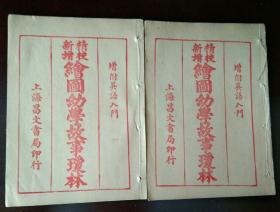 增附英語入門
精校
新增
繪圖幼學故事瓊林
上海昌文書局印行
增附英語入門
精校
新增
繪圖幼學故事瓊林
上海昌文書局印行